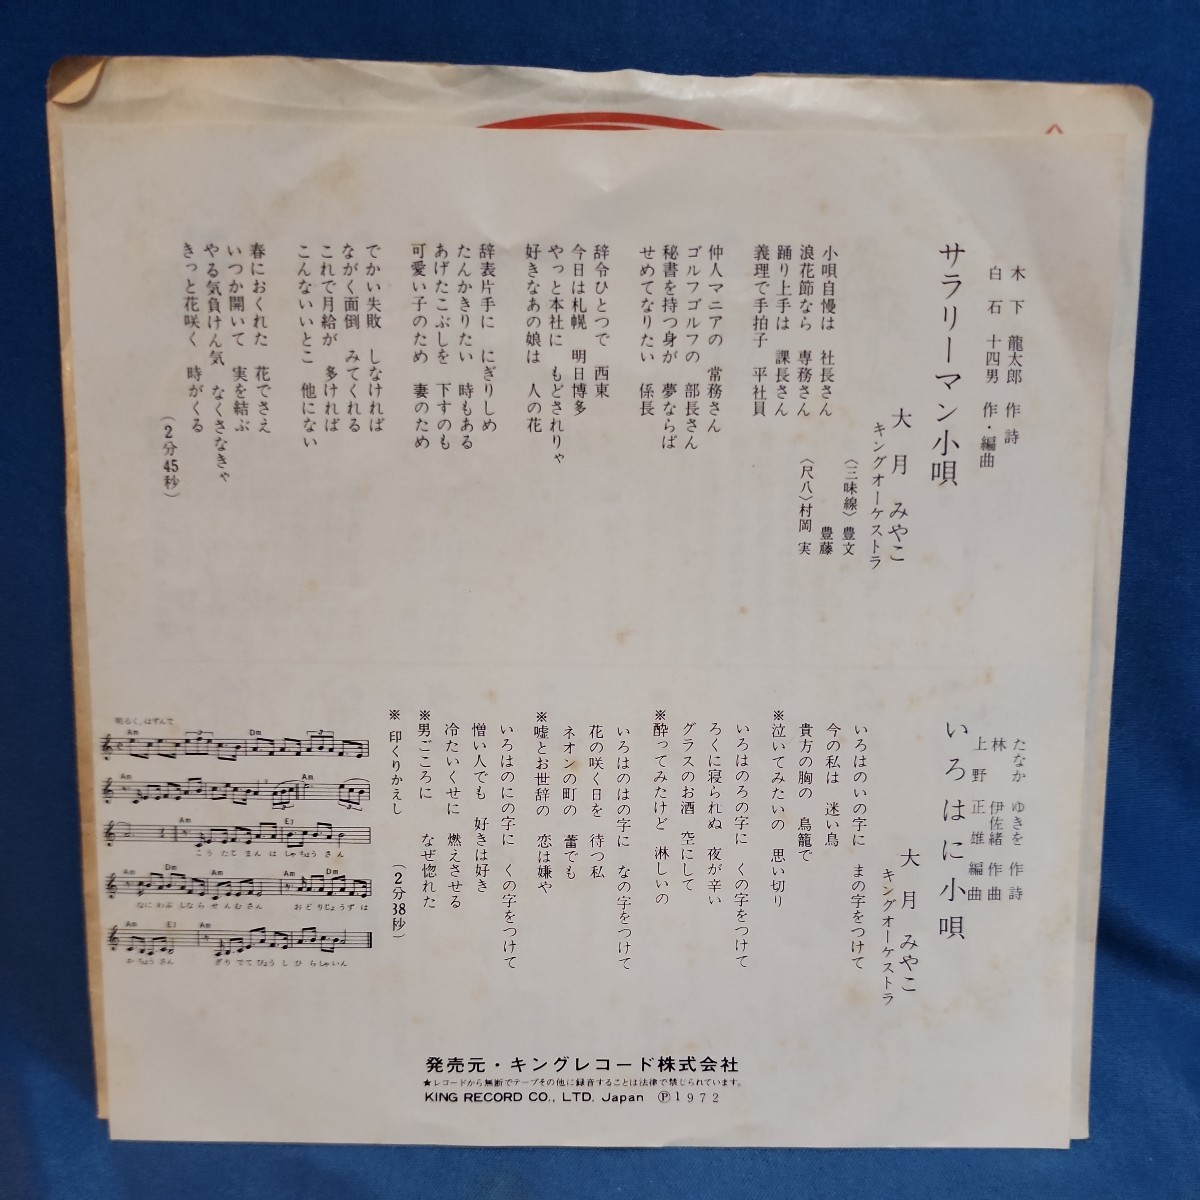 サラリーマン小唄
木下 龍太郎 作詩
白石 十四男 作・編曲
大月 みやこ
キングオーケストラ
〈三味線〉豊文
豊藤
〈尺八〉村岡 実
小唄自慢は 社長さん
浪花節なら 専務さん
踊り上手は 課長さん
義理で手拍子 平社員
仲人マニアの 常務さん
ゴルフゴルフの 部長さん
秘書を持つ身が 夢ならば
せめてなりたい 係長
辞令ひとつで 西東
今日は札幌 明日博多
やっと本社に もどされりゃ
好きなあの娘は 人の花
辞表片手に にぎりしめ
たんかきりたい 時もある
あげたこぶしを 下すのも
可愛い子のため 妻のため
でかい失敗 しなければ
ながく面倒 みてくれる
これで月給が 多ければ
こんないいとこ 他にない
春におくれた 花でさえ
いつか開いて 実を結ぶ
やる気負けん気 なくさなきゃ
きっと花咲く 時がくる
(2分45秒)
いろはに小唄
たなか ゆきを 作詩
林 伊佐緒 作曲
上野 正雄 編曲
大月 みやこ
キングオーケストラ
いろはのいの字に まの字をつけて
今の私は 迷い鳥
貴方の胸の 鳥籠で
※泣いてみたいの 思い切り
いろはのろの字に くの字をつけて
ろくに寝られぬ 夜が辛い
グラスのお酒 空にして
※酔ってみたけど 淋しいの
いろはのはの字に なの字をつけて
花の咲く日を 待つ私
ネオンの町の 蕾でも
※嘘とお世辞の 恋は嫌や
いろはのにの字に くの字をつけて
憎い人でも 好きは好き
冷たいくせに 燃えさせる
※男ごころに なぜ惚れた
※印くりかえし
(2分38秒)
明るく、はずんで
Am Dm
Am Am
Am E7
こうたじまんは しゃちょうさん
Dm Am Dm
なにわぶしなら せんむさん おどりじょうずは
Am E7 Am
かちょうさん ぎりでてびょうしひらしゃいん
発売元・キングレコード株式会社
★レコードから無断でテープその他に録音することは法律で禁じられています。
KING RECORD CO., LTD. Japan Ⓟ1972